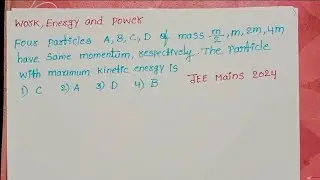 Work, Energy and Power
Four Particles A, B, C, D of mass m/2, m, 2m, 4m
have same momentum, respectively. The Particle
with maximum kinetic energy is
1) C 2) A 3) D 4) B JEE Mains 2024